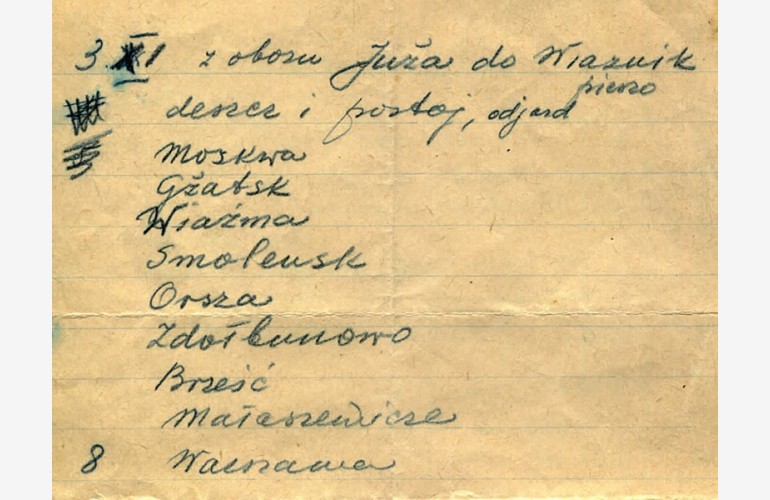 3 XI z obozu Juża do Wiaznik
pieszo
deszcz i postój, odjazd
Moskwa
Gżatsk
Wiaźma
Smoleńsk
Orsza
Zdołbunowo
Brześć
Małaszewicze
8 Warszawa